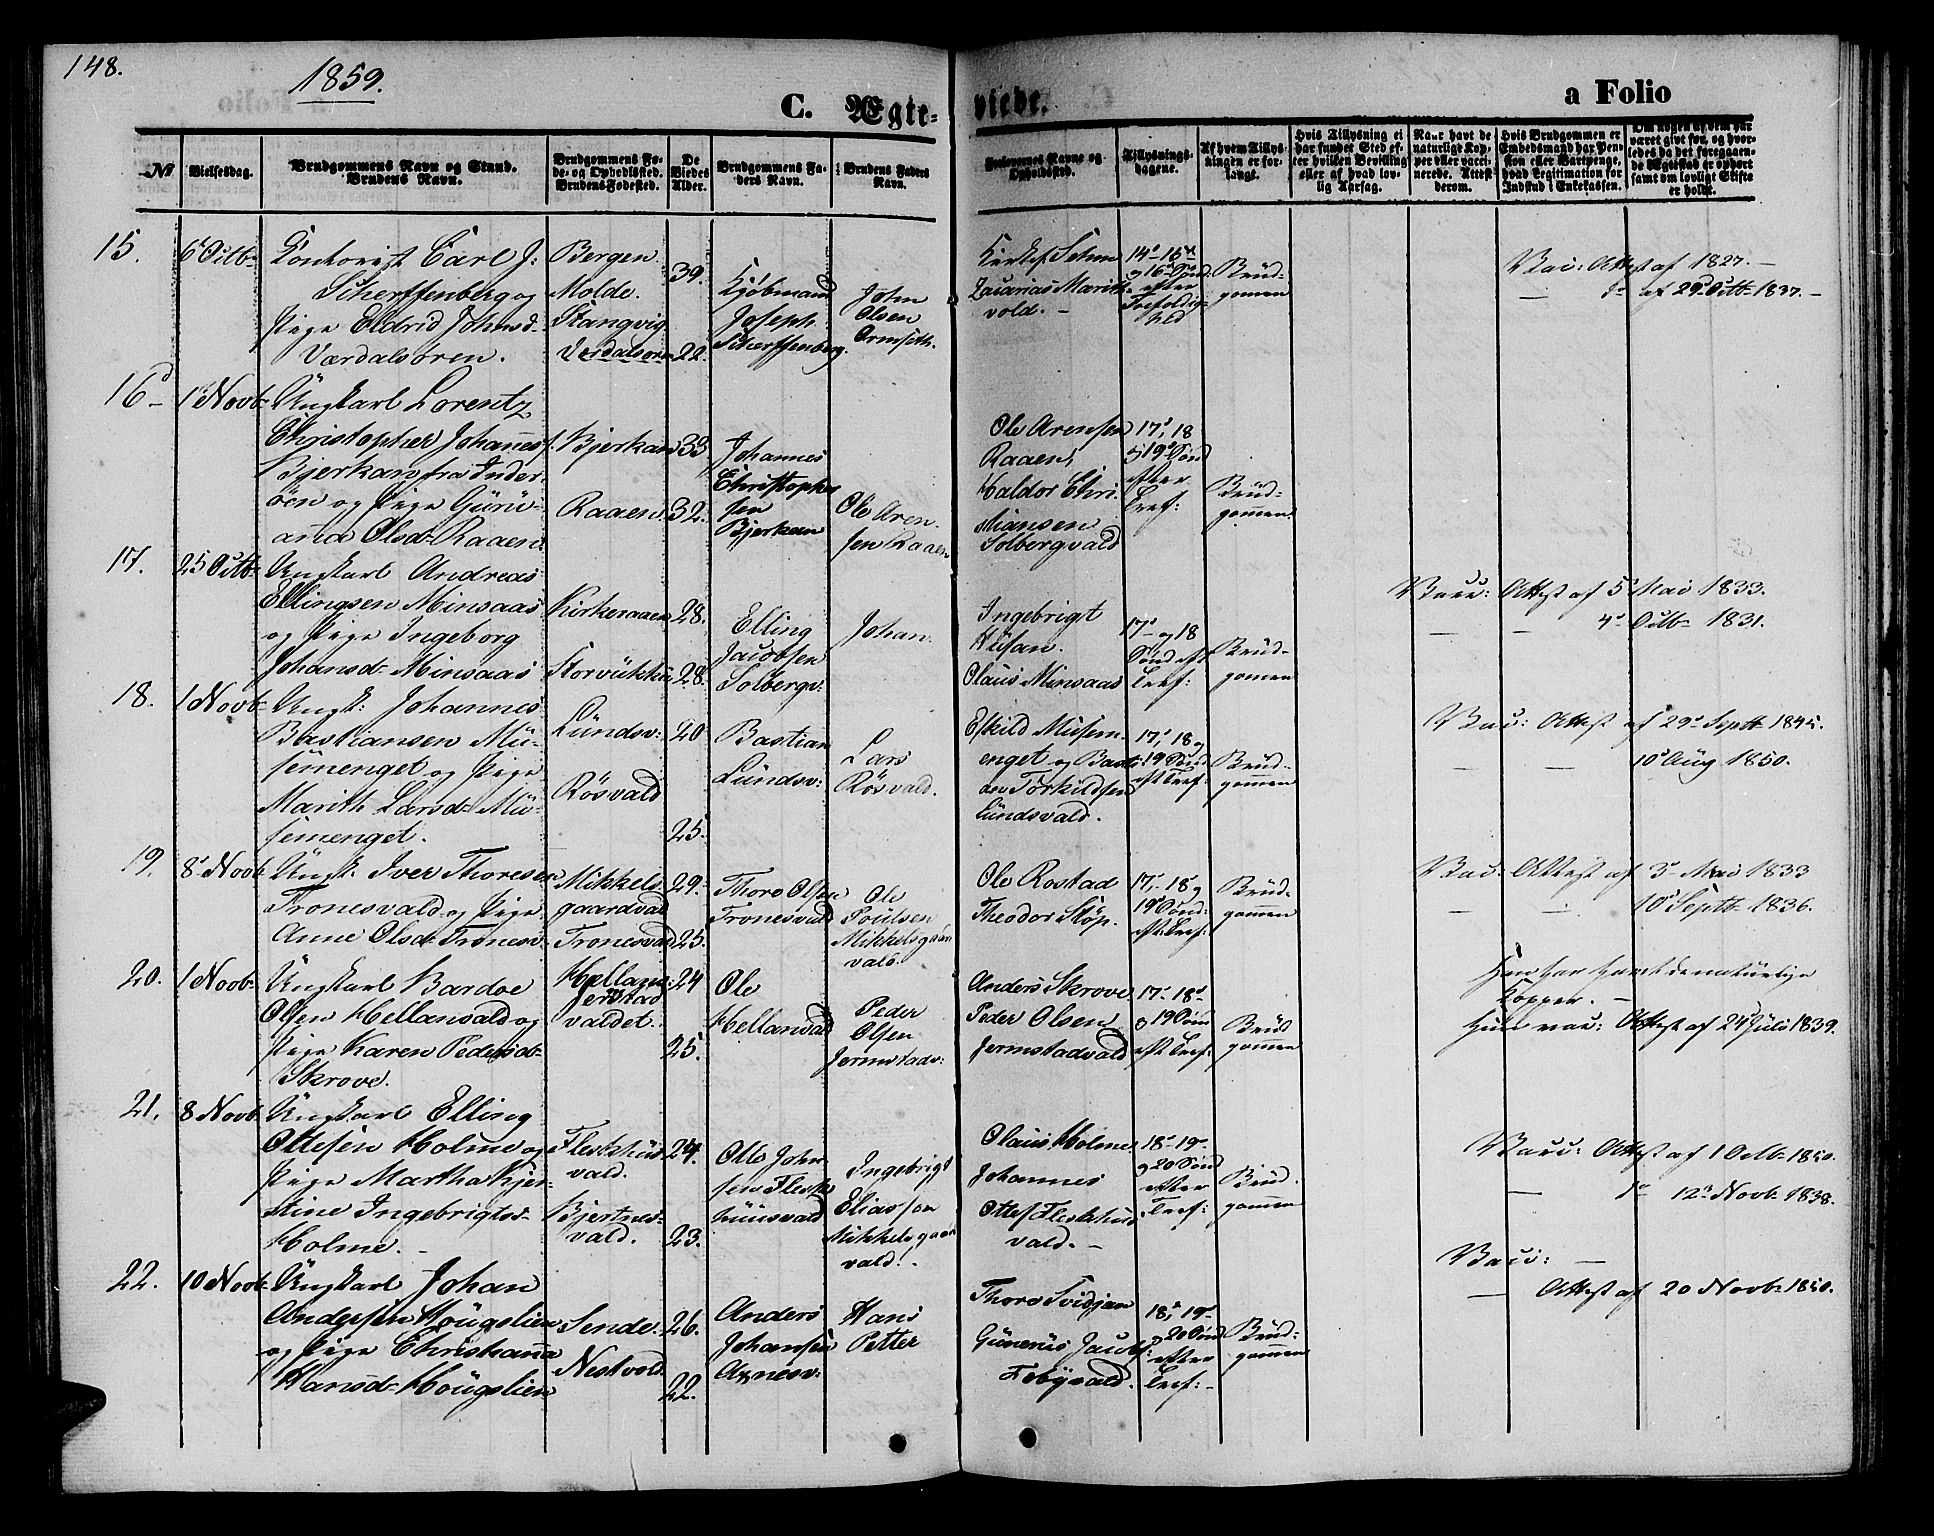 148.
1859.
C. Ægte-
viede.
a Folio
№
Vielsesdag.
Brudgommens Navn og Stand.
Brudens Navn.
Brudgommens Fø-
de- og Opholdssted.
Brudens Fødested.
De
Viedes
Alder.
Brudgommens Fa-
ders Navn.
Brudens Faders
Navn.
Forlovernes Navne og
Opholdssted.
Tillysnings-
dagene.
Af hvem Tillys-
ningen er for-
langt.
Hvis Tillysning ei
har fundet Sted ef-
ter hvilken Bevilling
eller af hvad lov-
lig Aarsag.
Naar havt de
naturlige Kop-
per eller vacci-
nerede. Attest
derom.
Hvis Brudgommen er
Embedsmand har Pen-
sion eller Vartpenge,
hvad Legitimation for
Indskud i Enkekassen.
Om nogen af dem har
været givt før, og hvor-
ledes da det foregaaen-
de Ægteskab er ophørt
samt om lovligt Skifte
er holdt.
15.
6 Octb-
Contorist Carl J:
Scherffenberg og
Pige Eldrid Johnsd-
Værdalsøren.
Bergen
Molde.
Stangvig
Værdalsøren
39.
22.
Kjøbmand
Joseph
Scherffenberg.
John
Olsen
Ormseth.
Zacarias Marith-
vold. -
14d- 15d
og 16d Sønd:
efter
Trefoldig-
hed
Brud-
gomen
Vac: Attest af 1827. -
- Do af 29d Octb- 1837. -
16d
1 Novb-
Ungkarl Lorentz
Christopher Johannesf.
Bjerkan fra Inder
øen og Pige Guru-
anna Olsd- Raaen.
Bjerkan
Raaen
33
32.
Johannes
Christopher
sen
Bjerkan
Ole Aren-
sen Raaen
Ole Arensen
Raaen,
Haldor Chri-
stiansen
Solbergvald
17d, 18
og 19d Sønd
efter
Tref:
Brud-
gomen.
17.
25 Octb-
Ungkarl Andreas
Ellingsen Minsaas
og Pige Ingeborg
Johansd- Minsaas
Kirkeraaen
Storvukku
28.
28.
Elling
Jacobsen
Solbergv:
Johan.
Ingebrigt
Husan.
Olaus Minsaas
17d- og 18
Sønd eft
Tref:
Brud-
gomen
Vacc: Attest af 5 Mai 1833.
- - 4d Octb- 1831.
18.
1 Novb-
Ungk: Johannes
Bastiansen Mü-
semenget og Pige
Marith Larsd- Mü-
semenget.
Lundsv:
Røsvald
20
25.
Bastian
Lundsv:
Lars
Røsvald.
Eskild Musem-
enget og Basti-
an Torkildsen
Lundsvald.
17d, 18 og
19 Sønd
eft Tref:
Brud-
gomen
Vac: Attest af 29d Septb- 1845.
- - 10d Aug 1850.
19.
8d Novb
Ungk: Iver Thoresen
Tronesvald og Pige
Anne Olsd- Tronesv-
Mikkels
gaardvald
Tronesvald
29.
25.
Thore Olsen
Tronesvald
Ole
Poulsen
Mikkelsgaar
vald.
Ole Rostad
Theodor Støp.
17d- 18d og
19d Sønd:
eft. Tref:
Brud-
gomen
Vac: Attest af 3d Mai 1833
- - 10d Septb- 1836.
20.
1 Novb-
Ungkarl Bardoe
Olsen Hellansald og
Pige Karen Pedersd-
Skrove.
Hellans:
Jermstad
valdet.
24
25.
Ole
Hellansvald
Peder
Olsen
Jermstadv:
Anders Skrove
Peder Olsen
Jermstadvald
17d- 18d
og 19 Sønd
eft Tref:
Brud
gomen
Han har havt de naturlige
Kopper. -
Hun vac: Attest af 24d Juli 1839.
21.
8 Novb-
Ungkarl Elling
Ottesen Holme og
Pige Martha Kjer-
stine Ingebrigtsd-
Holme. -
Fleskhus
vald.
Bjertnes-
vald.
24.
23.
Otto John
sen Flesk-
huusvald
Ingebrigt
Eliassen
Mikkelsgaar
vald.
Olaus Holme
Johannes
Ottesf Fleskhus
vald. -
18d- 19d-
og 20 Sønd
efter
Tref:
Brud-
gomen
Vacc: Attest af 1 Octb- 1840.
- Do 12d Novb- 1838.
22.
10 Novb-
Ungkarl Johan
Andersen Hougslien
og Pige Christianna
Hansd- Hougslien
Sende.
Nestvold
26.
22.
Anders
Johansen
Arnesv:
Hans
Petter
Thore Svidjan
Gunerius Jacobs:
Febyvald.
18d, 19d
20 Sønd
efter
Tref: -
Brud-
gomen
Vacc: -
- Attest af 20 Novb- 1840.